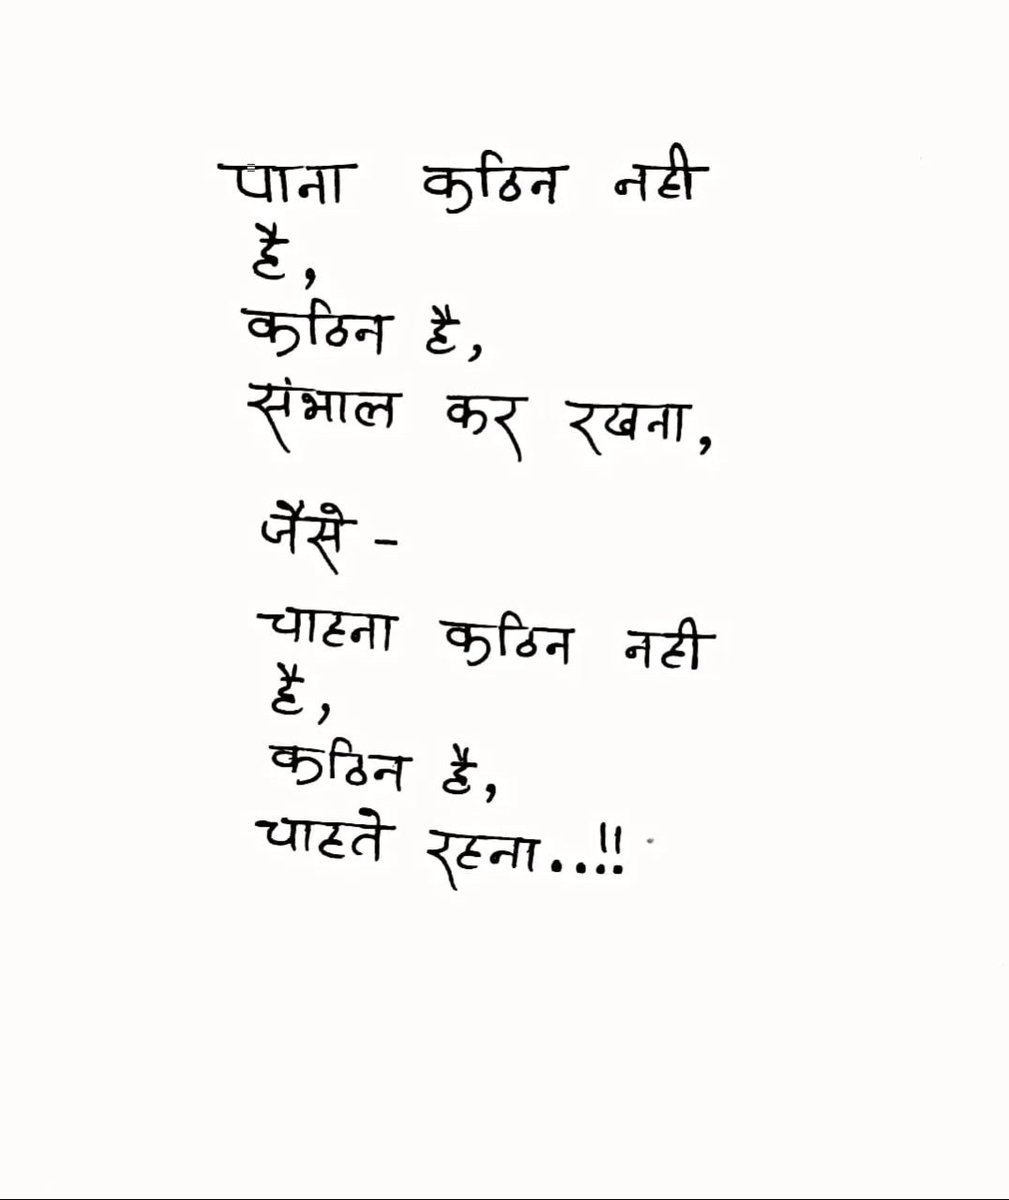 पाना कठिन नही
है,
कठिन है,
संभाल कर रखना,
जैसे -
चाहना कठिन नही
है,
कठिन है,
चाहते रहना..!!